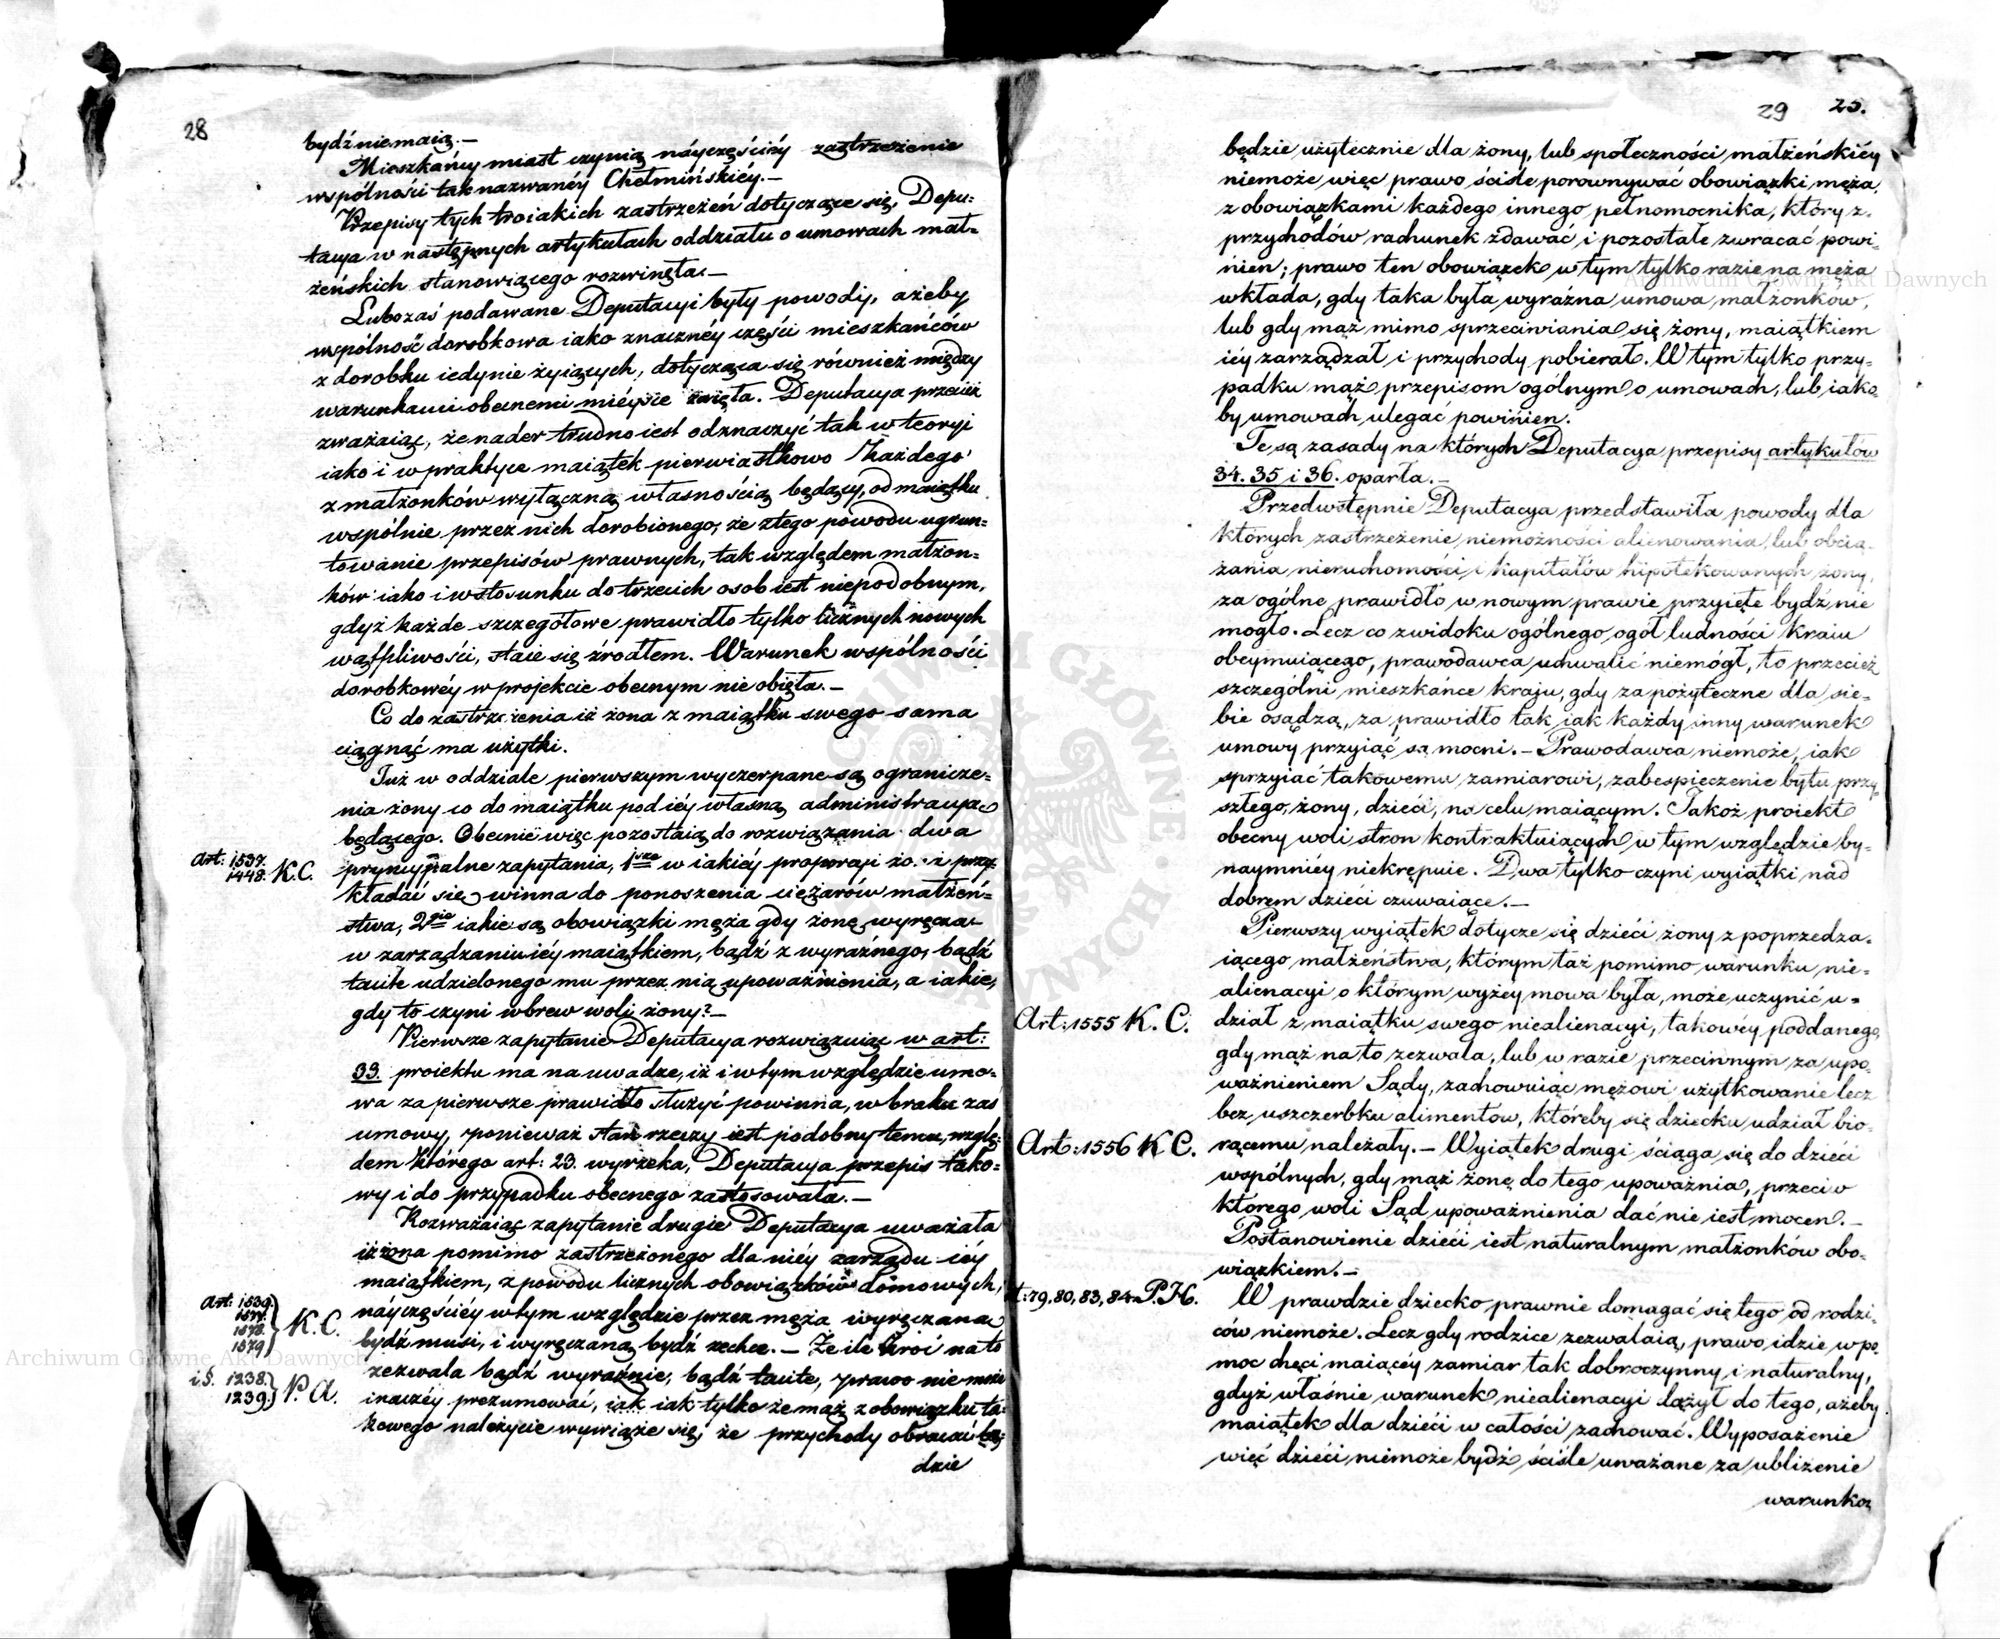 28
bydź niemaią.—
Mieszkańcy miast czynią náyczęściéy zastrzeżenie
wspólności tak nazwanéy Chełmińskiéy.—
Przepisy tych troiakich zastrzeżeń dotyczące się, Depu-
tacya w następnych artykułach oddziału o umowach mał-
żeńskich stanowiącego rozwinęła.—
Lubo zaś podawane Deputacyi były powody, ażeby
wspólność dorobkowa iako znacznéy części mieszkańców
z dorobku iedynie żyiących, dotycząca się również między
warunkami obecnemi miéysce zaięła. Deputacya przecież
zważaiąc, że nader trudno iest odznaczyć tak w teoryi
iako i w praktyce maiątek pierwiastkowo każdego
z małżonków wyłączną własnością będący, od maiątku
wspólnie przez nich dorobionego, że z tego powodu ugrun-
towanie przepisów prawnych, tak względem małżon-
ków iako i w stosunku do trzecich osob iest niepodobnym,
gdyż każde szczegółowe prawidło tylko licznych nowych
wątpliwości, staie się źrodłem. Warunek wspólności
dorobkowéy w projekcie obecnym nie obięła.—
Co do zastrzeżenia iż żona z maiątku swego sama
ciągnąć ma użytki.
Już w oddziale pierwszym wyczerpane są ogranicze-
nia żony co do maiątku pod iéy własną administracyą
będącego. Obecnie więc pozostaią do rozwiązania dwa
Art: 1537.
1448. K.C.
pryncypalne zapytania, 1sze w iakiéy proporcyi żona przy-
kładać się winna do ponoszenia ciężarów małżeń-
stwa, 2gie iakie są obowiązki męża gdy żonę wyręcza
w zarządzaniu iéy maiątkiem, bądź z wyraźnego, bądź
tacite udzielonego mu przez nią upoważnienia, a iakie,
gdy to czyni wbrew woli żony?—
Pierwsze zapytanie Deputacya rozwiązuiąc w art:
33. proiektu ma na uwadze, iż i w tym względzie umo-
wa za pierwsze prawidło służyć powinna, w braku zaś
umowy, ponieważ stan rzeczy iest podobny temu, wzglę-
dem którego art: 23. wyrzeka, Deputacya przepis tako-
wy i do przypadku obecnego zastosowała.—
Rozważaiąc zapytanie drugie Deputacya uważała
iż żona pomimo zastrzeżonego dla niéy zarządu iéy
maiątkiem, z powodu licznych obowiązków domowych,
Art: 1539.
1577.
1578.
1579 } K.C.
náyczęściéy w tym względzie przez męża wyręczana
bydź musi, i wyręczaną bydź zechce.— Że ile kroć na to
i §. 1238.
1239. } P.A.
zezwala bądź wyraźnie, bądź tacite, prawo nie może
inaczéy prezumować, iak iak tylko że mąż z obowiązku ta-
kowego należycie wywiąże się, że przychody obracać bę-
dzie
29 25.
będzie użytecznie dla żony, lub społeczności małżeńskiéy
niemoże więc prawo ściśle porownywać obowiązki męża
z obowiązkami każdego innego pełnomocnika, który z
przychodów rachunek zdawać i pozostałe zwracać powi-
nien; prawo ten obowiązek w tym tylko razie na męża
wkłada, gdy taka była wyraźna umowa małżonków,
lub gdy mąż mimo sprzeciwiania się żony, maiątkiem
iéy zarządzał i przychody pobierał. W tym tylko przy-
padku mąż przepisom ogólnym o umowach, lub iako-
by umowach ulegać powinien.
Te są zasady na których Deputacya przepisy artykułów
34. 35 i 36. oparła.—
Przedwstępnie Deputacya przedstawiła powody dla
których zastrzeżenie niemożności alienowania, lub obcią-
żania nieruchomości i kapitałów hipotekowanych żony,
za ogólne prawidło w nowym prawie przyięte bydź nie
mogło. Lecz co z widoku ogólnego ogół ludności kraiu
obeymuiącego, prawodawca uchwalić niemógł, to przecież
szczególni mieszkańce kraju, gdy za pożyteczne dla sie-
bie osądzą, za prawidło tak iak każdy inny warunek
umowy przyiąć są mocni.— Prawodawca niemoże, iak
sprzyiać takowemu zamiarowi, zabespieczenie bytu przy-
szłego, żony, dzieci, na celu maiącym. Jakoż proiekt
obecny woli stron kontraktuiących w tym względzie by-
naymniéy niekrępuie. Dwa tylko czyni wyiątki nad
dobrem dzieci czuwaiące.—
Pierwszy wyiątek dotycze się dzieci żony z poprzedza-
iącego małżeństwa, którym taż pomimo warunku nie-
alienacyi o którym wyżéy mowa była, może uczynić u-
Art: 1555 K.C.
dział z maiątku swego niealienacyi, takowéy poddanego,
gdy mąż na to zezwala, lub w razie przeciwnym za upo-
ważnieniem Sądy, zachowuiąc mężowi użytkowanie lecz
bez uszczerbku alimentów, któreby się dziecku udział bio-
Art: 1556 K.C.
rącemu należały.— Wyiątek drugi ściąga się do dzieci
wspólnych, gdy mąż żonę do tego upoważnia, przeciw
którego woli Sąd upoważnienia dać nie iest mocen.—
Postanowienie dzieci iest naturalnym małżonków obo-
wiązkiem.—
t: 79, 80, 83, 84. P.H.
W prawdzie dziecko prawnie domagać się tego od rodzi-
ców niemoże. Lecz gdy rodzice zezwalaią, prawo idzie w po-
moc chęci maiącéy zamiar tak dobroczynny i naturalny,
gdyż właśnie warunek niealienacyi dążył do tego, ażeby
maiątek dla dzieci w całości zachować. Wyposażenie
więc dzieci niemoże bydź ściśle uważane za ubliżenie
warunkow